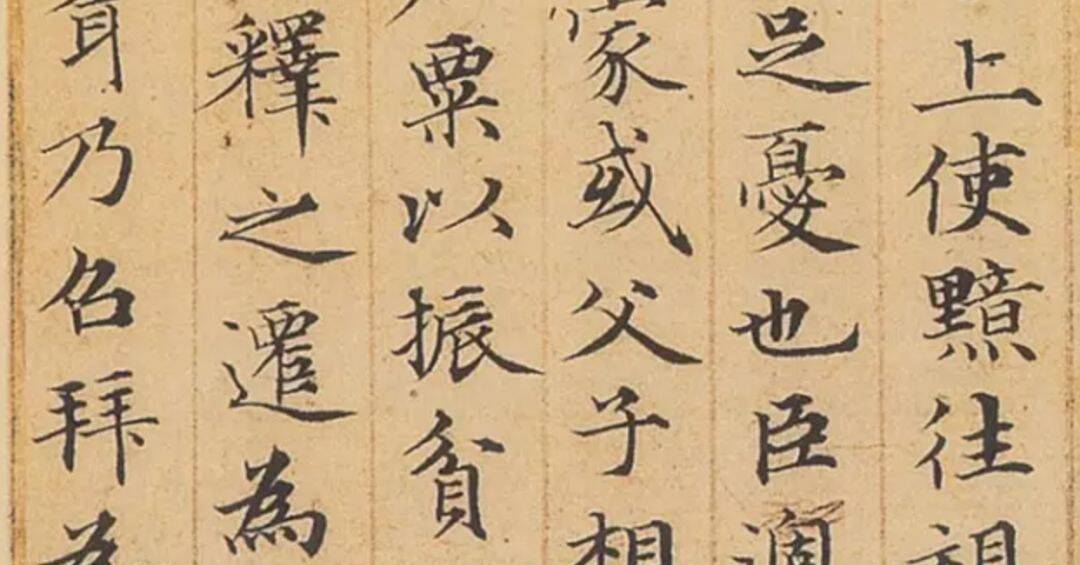 上使黯往視
足憂也臣過
家或父子相
粟以振貧
釋之遷為
乃召拜為